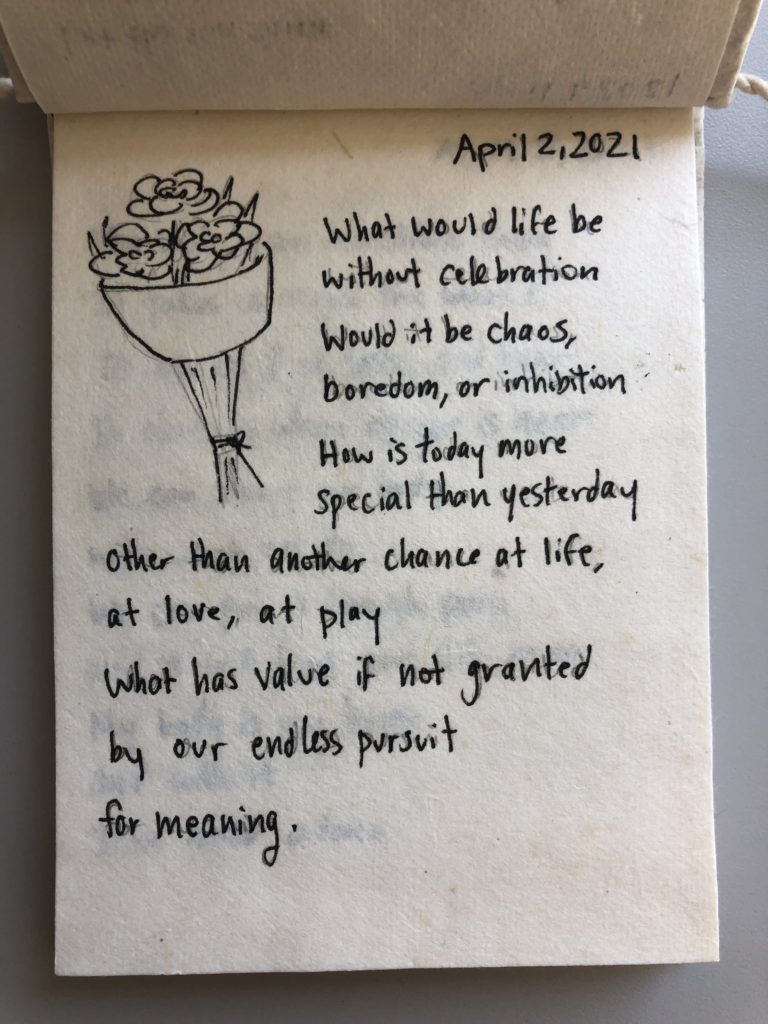 April 2, 2021
What would life be
without celebration
Would it be chaos,
boredom, or inhibition
How is today more
special than yesterday
other than another chance at life,
at love, at play
What has value if not granted
by our endless pursuit
for meaning.